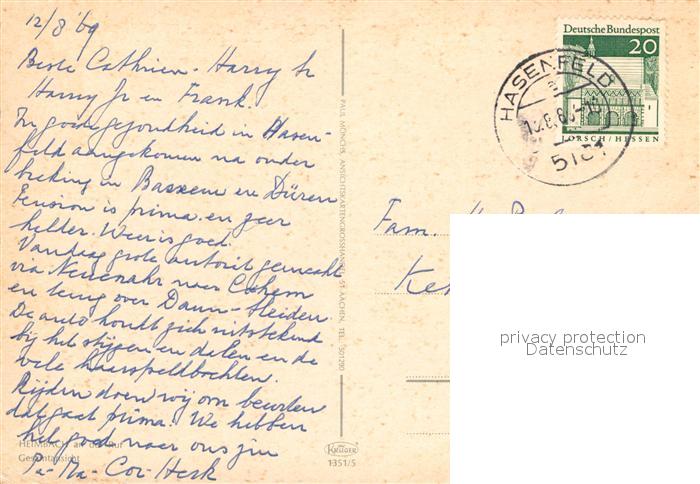 12/8 '69
Beste Cathrien - Harry Sr
Harry Jr en Frank.
In goede gezondheid in Hasen-
feld aangekomen na onder
breking in en Düren
Pension is prima en zeer
helder. Weer is goed.
Vandaag grote autorit gemaakt
via Neuenahr naar Cochem
en terug over Daun -
De auto houdt zich uitstekend
bij het stijgen en dalen en de
vele haarspeldbochten.
Rijden doen wij om beurten
dat gaat prima. We hebben
het goed naar ons zin
Pa - Ma - Cor - Henk
HEIMBACH an der Rur
Gesamtansicht
PAUL MÖNCHS, ANSICHTSKARTENGROSSHANDEL, 51 AACHEN, TEL. 501290
KRÜGER
1351/5
Deutsche Bundespost
20
LORSCH / HESSEN
HASENFELD
5161
Fam.
privacy protection
Datenschutz